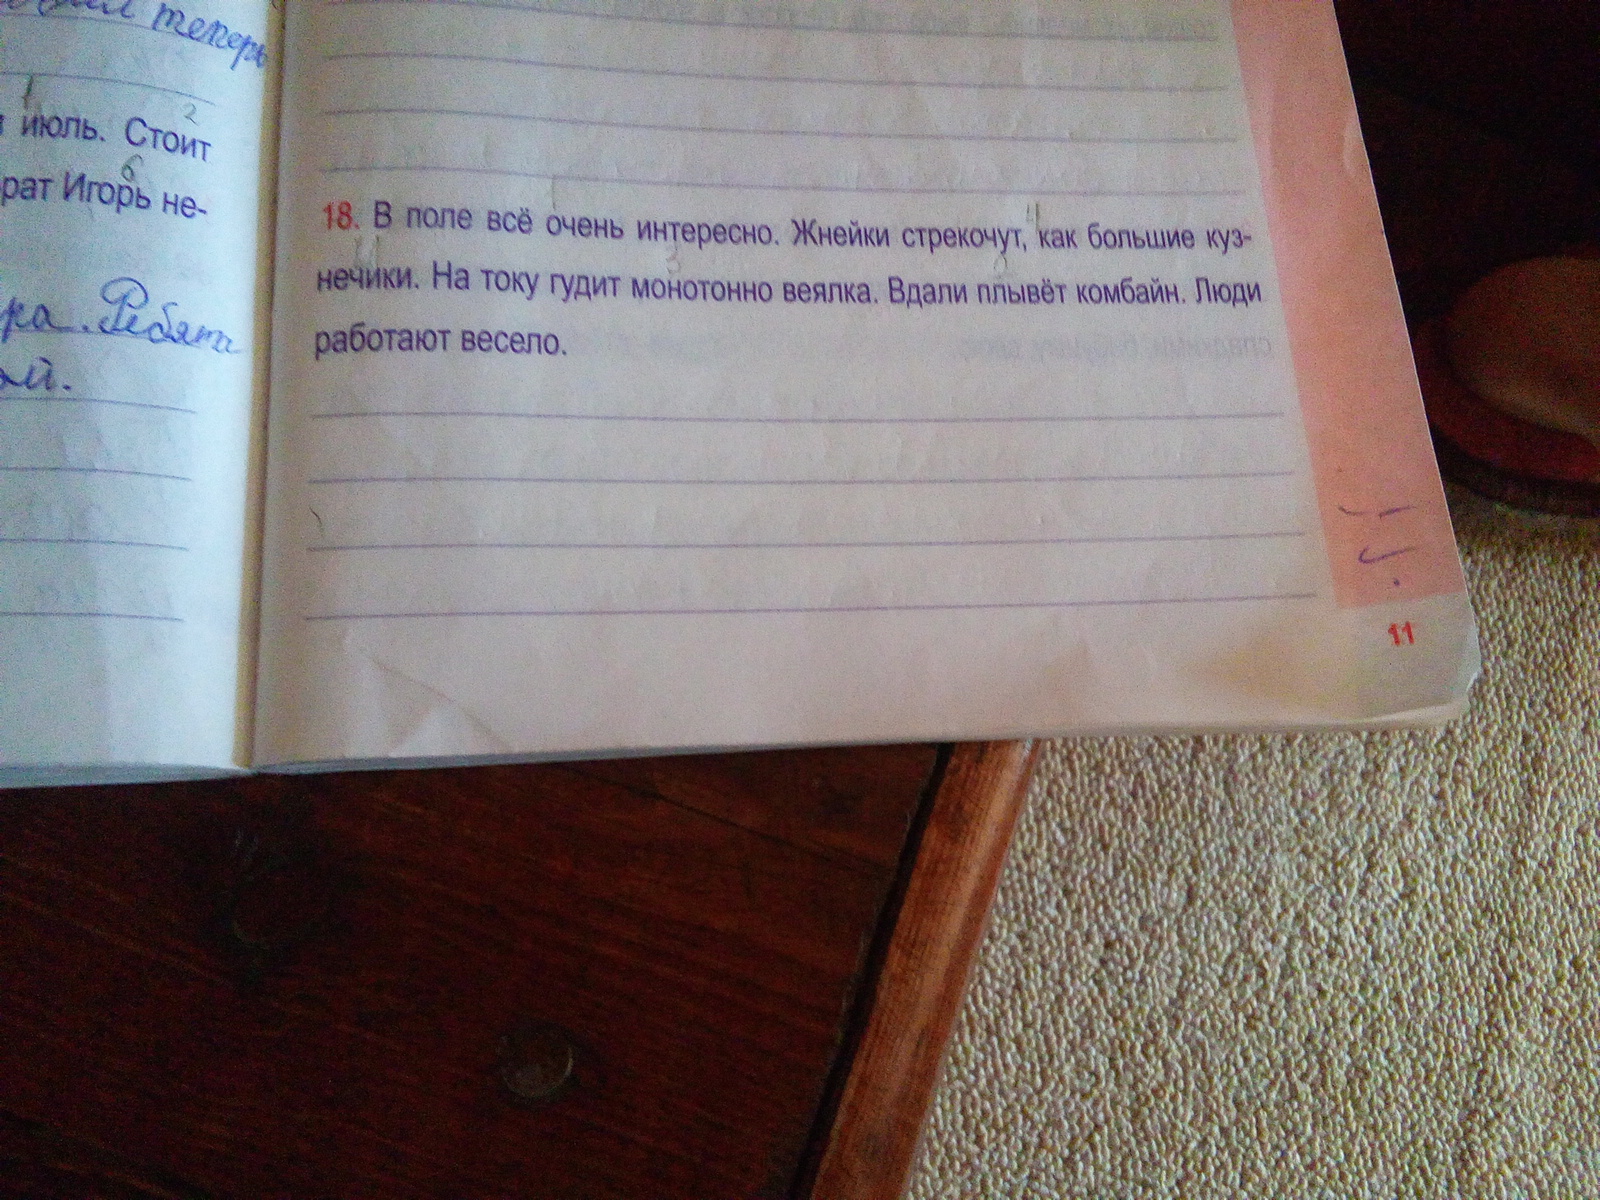 теперь
1 2
июль. Стоит
6
рат Игорь не-
ра. Ребята
ой.
18. В поле всё очень интересно. Жнейки стрекочут, как большие куз-
нечики. На току гудит монотонно веялка. Вдали плывёт комбайн. Люди
работают весело.
11